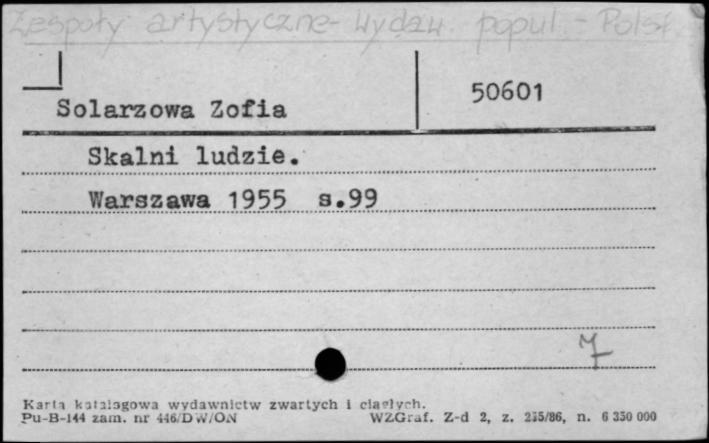 Zespoły artystyczne - wydaw. popul. - Polsk
50601
Solarzowa Zofia
Skalni ludzie.
Warszawa 1955 s.99
7
Karta katalogowa wydawnictw zwartych i ciągłych.
Pu-B-144 zam. nr 446/DW/ON WZGraf. Z-d 2, z. 235/86, n. 6 350 000